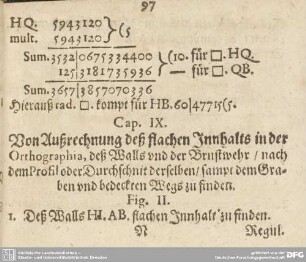 97
HQ. 5943120
mult. 5943120 } (5
Sum. 3532|0675334400 } (10. für □. HQ.
125|3181735936 — für □. QB.
Sum. 3657|3857070336
Hierauß rad. □. kompt für HB. 60|47715(5.
Cap. IX.
Von Außrechnung deß flachen Innhalts in der
Orthographia, deß Walls vnd der Brustwehr / nach
dem Profil oder Durchschnit derselben / sampt dem Gra-
ben vnd bedeckten Wegs zu finden.
Fig. II.
1. Deß Walls HI. AB. flachen Innhalt zu finden.
N Regul.